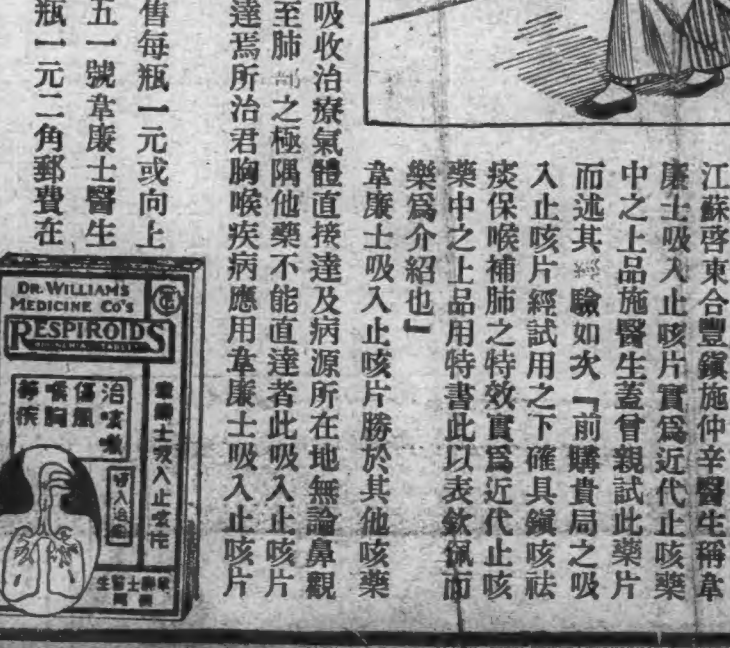 江蘇啓東合豐鎭施仲辛醫生稱韋
廉士吸入止咳片實爲近代止咳藥
中之上品施醫生蓋曾親試此藥片
而述其經驗如次『前購貴局之吸
入止咳片經試用之下確具鎭咳祛
痰保喉補肺之特效實爲近代止咳
藥中之上品用特書此以表欽佩而
樂爲介紹也』
韋廉士吸入止咳片勝於其他咳藥
吸收治療氣體直接達及病源所在地無論鼻觀
至肺部之極隅他藥不能直達者此吸入止咳片
達焉所治君胸喉疾病應用韋廉士吸入止咳片
售每瓶一元或向上
五一號韋廉士醫生
瓶一元二角郵費在
DR. WILLIAMS
MEDICINE CO'S
RESPIROIDS
韋廉士吸入止咳片
治咳嗽
傷風
喉胸
等疾